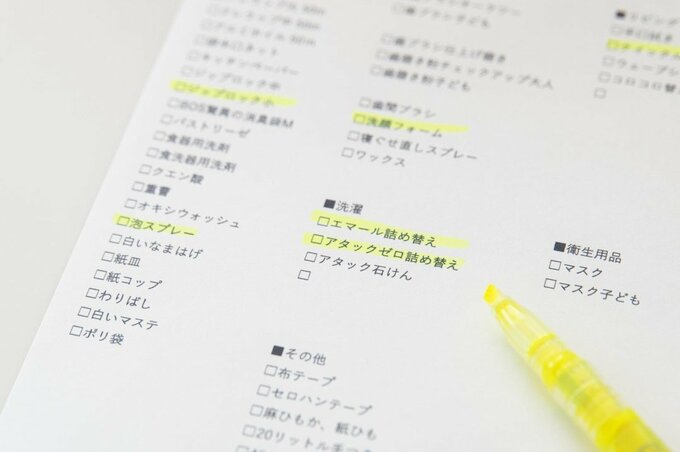 □キッチンペーパー
□ジップロック中
□ジップロック小
□BOS驚異の消臭袋M
□パストリーゼ
□食器用洗剤
□食洗器用洗剤
□クエン酸
□重曹
□オキシウォッシュ
□泡スプレー
□白いなまはげ
□紙皿
□紙コップ
□わりばし
□白いマステ
□ポリ袋
□歯ブラシ子ども
□歯ブラシ仕上げ磨き
□歯磨き粉チェックアップ大人
□歯磨き粉子ども
□歯間ブラシ
□洗顔フォーム
□寝ぐせ直しスプレー
□ワックス
■洗濯
□エマール詰め替え
□アタックゼロ詰め替え
□アタック石けん
□
■その他
□布テープ
□セロハンテープ
□麻ひもか、紙ひも
□20リットル
■リビング
□
■衛生用品
□マスク
□マスク子ども